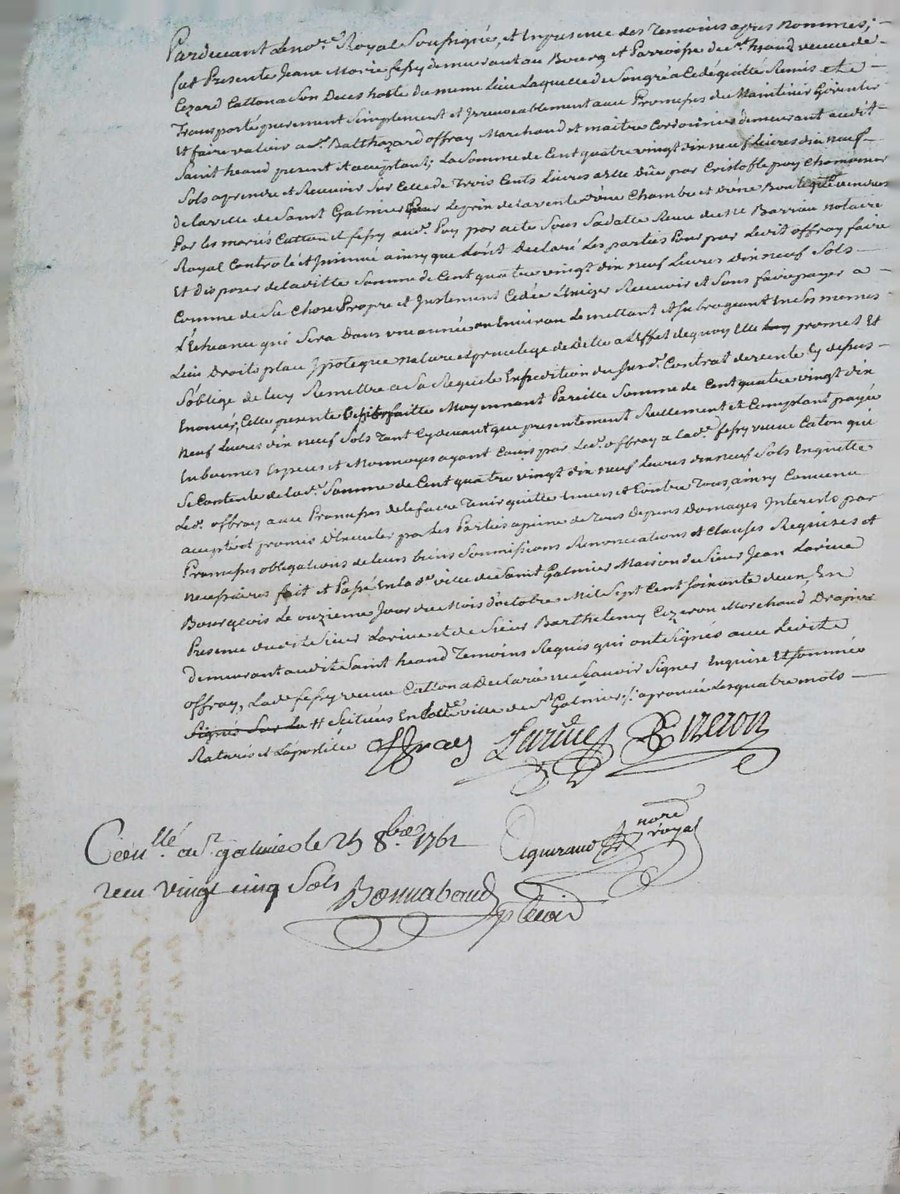 Pardevant Le no.re Royal Soussigné, et En presence des Temoins apres Nommés;
fut Presente Jeane Marie fessy demeurant au Bourg et Parroisse de St héand veuve de
Cezard Catton a Son Deces hoste du meme Lieu Laquelle de Son gré a Cedé quitté Remis et
Transporté purement Simplement et Irrevocablement avec Promesses de Maintenir Garentir
Et faire valoir a Sr. Balthazard offray Marchand et maitre Cordonnier demeurant audit
Saint heand present et acceptant; La Somme de Cent quatre vingt dix neuf Livres dix neuf
Sols a prendre et Recevoir Sur Celle de Trois Cents Livres a Elle Düe par Cristofle puy
de la ville de Saint Galmier Pour Le prix de la vente d'une Chambre et d'une Boutique vendues
Par les mariés Catton et fessy aud. Puy par acte Sous Sa datte Receu de Me Barriau notaire
Royal Controlé et Insinué ainsy que L'ont Declaré Les parties Pour par Ledit offray faire
Et disposer de Laditte Somme de Cent quatre vingt dix neuf Livres dix neuf Sols
Comme de Sa Chose Propre et Justement Cedée L'Exiger Recevoir et Sen faire payer a
L'Echeance qui Sera Dans une année ou Environ Le mettant et Subrogeant En Ses memes
Lieu Droits place Ypoteque nature et privilege de Delle a L'effet de quoy Elle promet Et
S'oblige de Luy Remettre a Sa Requete Expedition du Susd. Contrat de vente Cy dessus
Enoncé, Cette presente faitte Moyennant Pareille Somme de Cent quatre vingt dix
Neuf Livres dix neuf Sols Tant Cy devant que presentement Reellement et Comptant payée
En bonnes Especes et Monnoyes ayant Cours par Led. offray a lad. fessy veuve Caton qui
Se Contente de lad. Somme de Cent quatre vingt dix neuf Livres dix neuf Sols En quitte
Led. offray avec Promesses de le faire Tenir quitte Envers et Contre Tous ainsy Convenu
accepté et promis d'Executer par Les Parties a peine de Tous Depens Domages Interests par
Promesses obligations de Leurs biens Soumissions Renonciations et Clauses Requises et
necessaires fait et Passé En la de ville de Saint Galmier Maison du Sieur Jean Larive
Bourgeois Le onzieme Jour du Mois d'octobre Mil Sept Cent Soixante deux, En
Presence dudit Sieur Larive et de Sieur Barthelemy Cezeron Marchand Drapier
demeurant audit Saint heand Temoins Requis qui ont Signés avec Ledit
offray, La de fessy veuve Catton a Declarée ne Scavoir Signer Enquise Et Sommée
Signé Sur La # Scituées En ville de St Galmier /. aprouvé Les quatre mots
Raturés et L'apostille offray Larive Cezeron
Conllé a St. galmier le 25 8bre 1762
recu vingt cinq Sols Bonnabaud
nore
royal